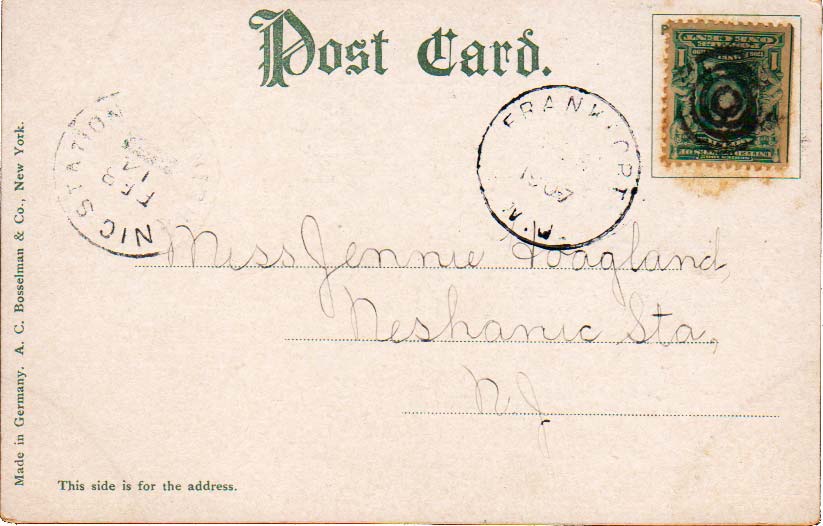 Post Card.
NIC STATION
FEB
14
1907
Miss Jennie Hoagland,
Neshanic Sta,
N.J
Made in Germany. A. C. Bosselman & Co., New York.
This side is for the address.